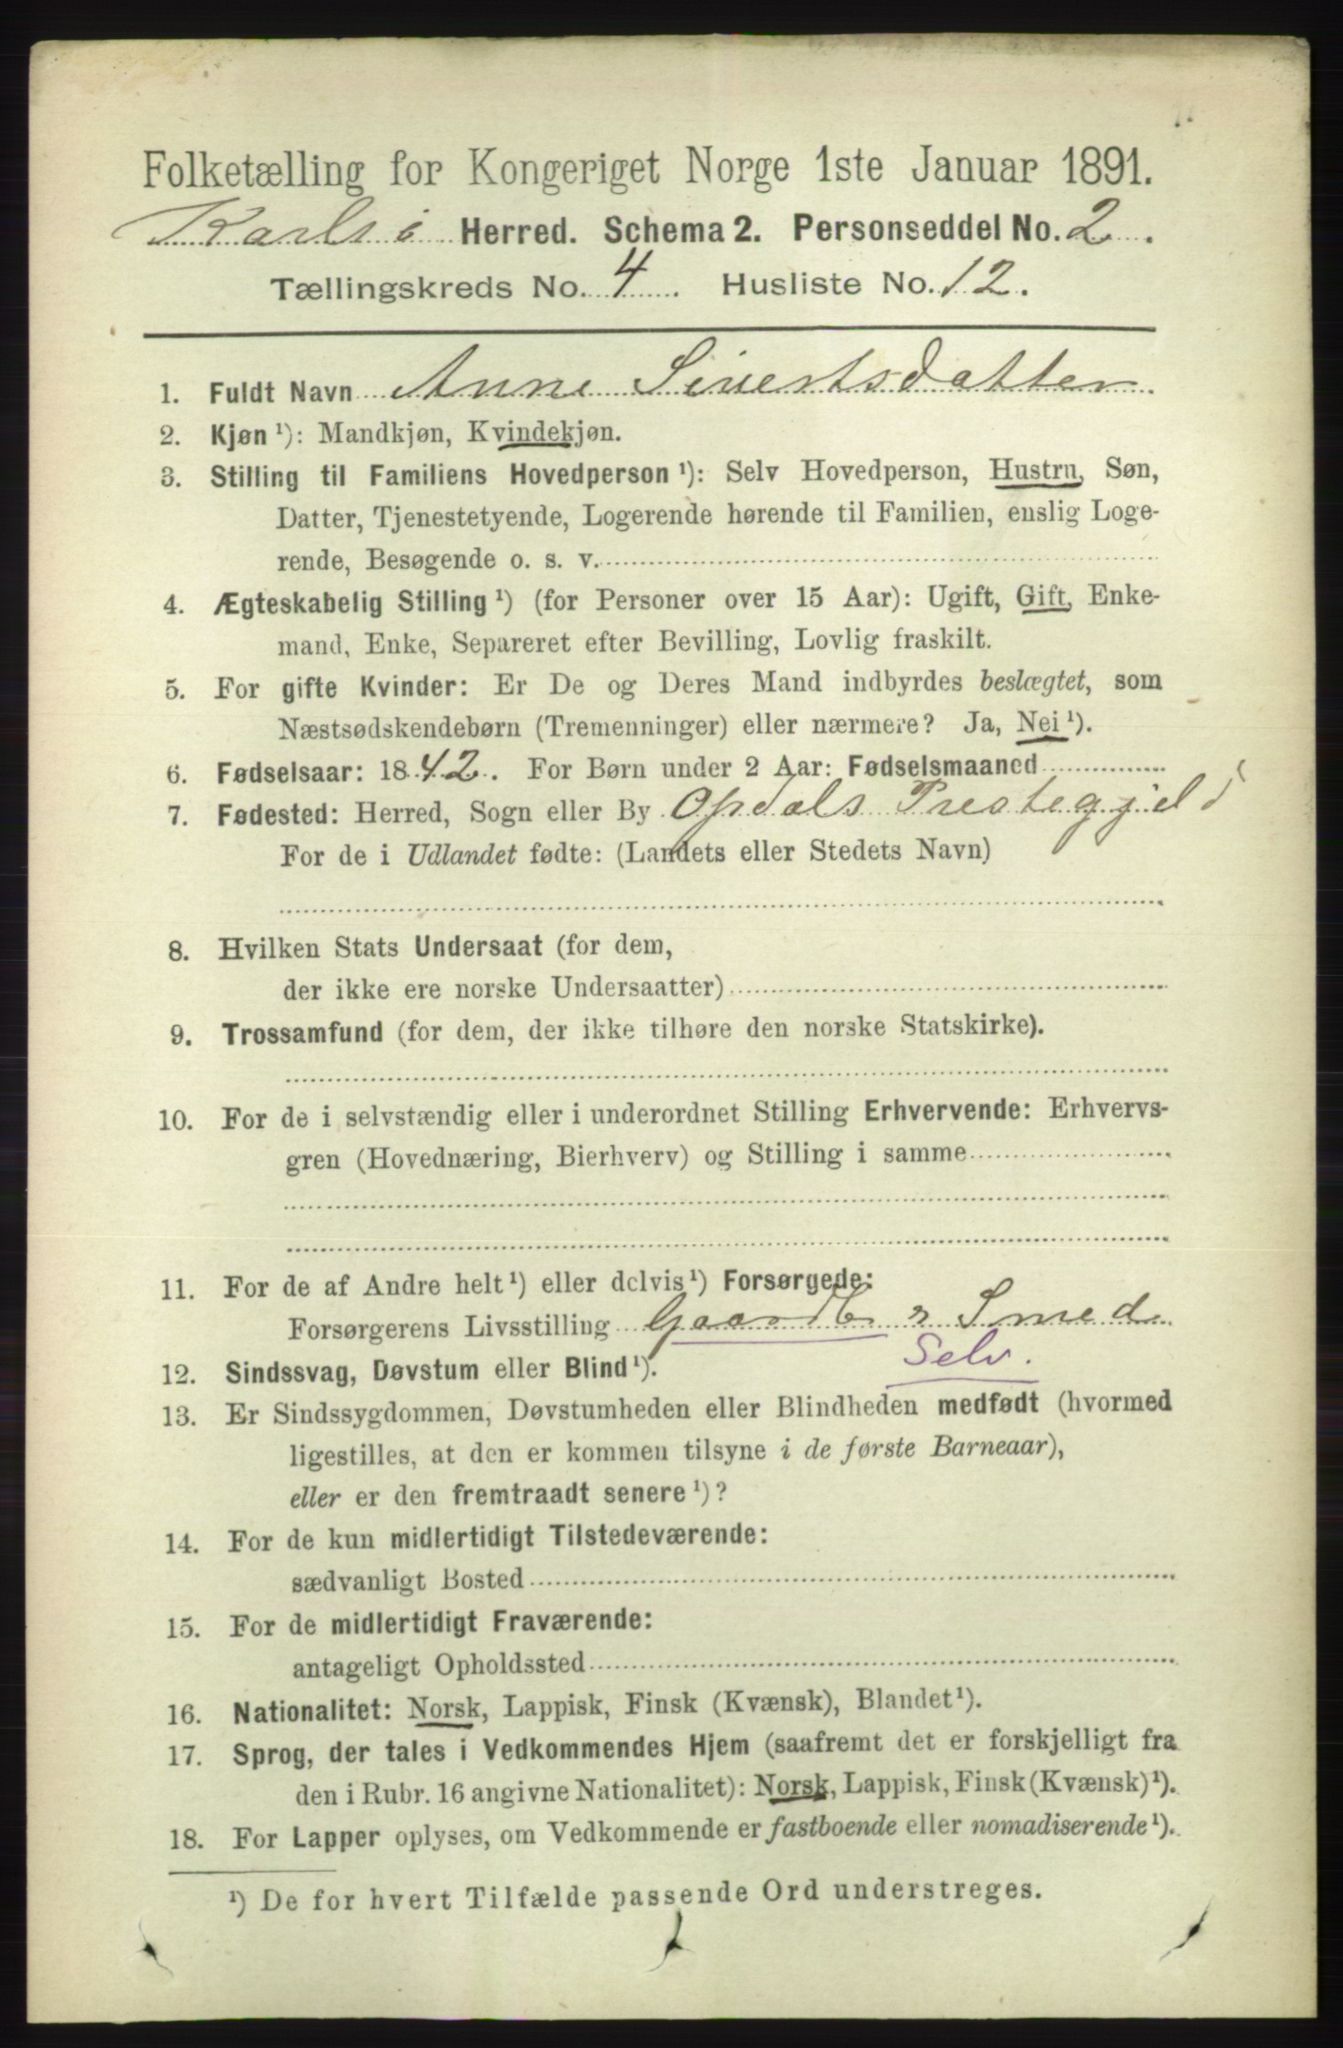 Folketælling for Kongeriget Norge 1ste Januar 1891.
Karlsø Herred. Schema 2. Personseddel No. 2.
Tællingskreds No. 4 Husliste No. 12.
1. Fuldt Navn Anne Sivertsdatter
2. Kjøn ¹): Mandkjøn, Kvindekjøn.
3. Stilling til Familiens Hovedperson ¹): Selv Hovedperson, Hustru, Søn,
Datter, Tjenestetyende, Logerende hørende til Familien, enslig Loge-
rende, Besøgende o. s. v.
4. Ægteskabelig Stilling ¹) (for Personer over 15 Aar): Ugift, Gift, Enke-
mand, Enke, Separeret efter Bevilling, Lovlig fraskilt.
5. For gifte Kvinder: Er De og Deres Mand indbyrdes beslægtet, som
Næstsødskendebørn (Tremenninger) eller nærmere? Ja, Nei ¹).
6. Fødselsaar: 1842. For Børn under 2 Aar: Fødselsmaaned
7. Fødested: Herred, Sogn eller By Opdals Prestegjeld
For de i Udlandet fødte: (Landets eller Stedets Navn)
8. Hvilken Stats Undersaat (for dem,
der ikke ere norske Undersaatter)
9. Trossamfund (for dem, der ikke tilhøre den norske Statskirke).
10. For de i selvstændig eller i underordnet Stilling Erhvervende: Erhvervs-
gren (Hovednæring, Bierhverv) og Stilling i samme
11. For de af Andre helt ¹) eller delvis ¹) Forsørgede:
Forsørgerens Livsstilling Gaardb Smed
Selv.
12. Sindssvag, Døvstum eller Blind ¹).
13. Er Sindssygdommen, Døvstumheden eller Blindheden medfødt (hvormed
ligestilles, at den er kommen tilsyne i de første Barneaar),
eller er den fremtraadt senere ¹)?
14. For de kun midlertidigt Tilstedeværende:
sædvanligt Bosted
15. For de midlertidigt Fraværende:
antageligt Opholdssted
16. Nationalitet: Norsk, Lappisk, Finsk (Kvænsk), Blandet ¹).
17. Sprog, der tales i Vedkommendes Hjem (saafremt det er forskjelligt fra
den i Rubr. 16 angivne Nationalitet): Norsk, Lappisk, Finsk (Kvænsk) ¹).
18. For Lapper oplyses, om Vedkommende er fastboende eller nomadiserende ¹).
¹) De for hvert Tilfælde passende Ord understreges.